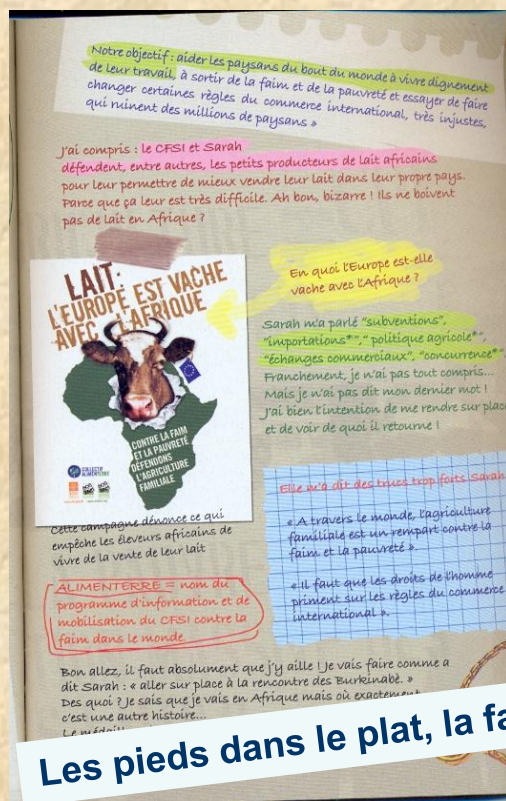 Notre objectif : aider les paysans du bout du monde à vivre dignement
de leur travail, à sortir de la faim et de la pauvreté et essayer de faire
changer certaines règles du commerce international, très injustes,
qui ruinent des millions de paysans »
J'ai compris : le CFSI et Sarah
défendent, entre autres, les petits producteurs de lait africains
pour leur permettre de mieux vendre leur lait dans leur propre pays.
Parce que ça leur est très difficile. Ah bon, bizarre ! Ils ne boivent
pas de lait en Afrique ?
LAIT:
L'EUROPE EST VACHE
AVEC L'AFRIQUE
CONTRE LA FAIM
ET LA PAUVRETÉ
DÉFENDONS
L'AGRICULTURE
FAMILIALE
COLLECTIF
ALIMENTERRE
Cette campagne dénonce ce qui
empêche les éleveurs africains de
vivre de la vente de leur lait
En quoi l'Europe est-elle
vache avec l'Afrique ?
Sarah m'a parlé "subventions",
"importations*", " politique agricole*",
"échanges commerciaux", "concurrence*"
Franchement, je n'ai pas tout compris...
Mais je n'ai pas dit mon dernier mot !
J'ai bien l'intention de me rendre sur place
et de voir de quoi il retourne !
Elle m'a dit des trucs trop forts Sarah
« A travers le monde, l'agriculture
familiale est un rempart contre la
faim et la pauvreté ».
« Il faut que les droits de l'homme
priment sur les règles du commerce
international ».
ALIMENTERRE = nom du
programme d'information et de
mobilisation du CFSI contre la
faim dans le monde
Bon allez, il faut absolument que j'y aille ! Je vais faire comme a
dit Sarah : « aller sur place à la rencontre des Burkinabè. »
Des quoi ? Je sais que je vais en Afrique mais où exactement
c'est une autre histoire...
Les pieds dans le plat, la